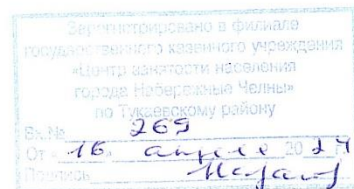 Зарегистрировано в филиале
государственного казенного учреждения
«Центр занятости населения
города Набережные Челны»
по Тукаевскому району
Вх.№ 269
От «16» апреля 20 24
Подпись